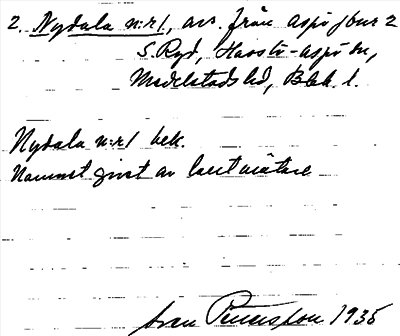 2. Nydala n:r 1, avs. från Aspö jbnr 2
S. Ryd, Hasslö-Aspö sn,
Medelstads hd, Blek. l.
Nydala n:r 1 bek.
Namnet givet av lantmätare
Svan Petersson 1935